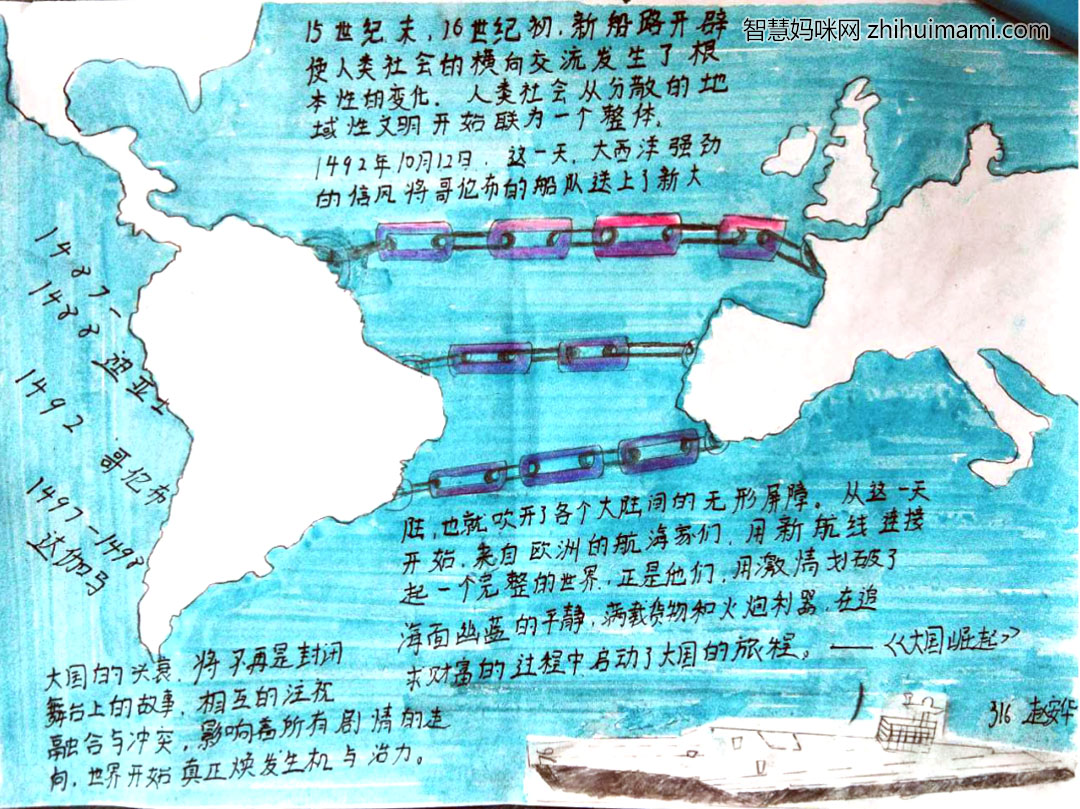 智慧妈咪网 zhihuimami.com
15世纪末，16世纪初，新船路开辟
使人类社会的横向交流发生了根
本性的变化．人类社会从分散的地
域性文明开始联为一个整体．
1492年10月12日．这一天．大西洋强劲
的信风将哥伦布的船队送上了新大
陆，也就吹开了各个大陆间的无形屏障。从这一天
开始．来自欧洲的航海家们．用新航线连接
起一个完整的世界．正是他们．用激情划破了
海面幽蓝的平静，满载货物和火炮利器．在追
求财富的过程中启动了大国的旅程。——《大国崛起》
1487-
1488 迪亚士
1492 ．哥伦布
1497-1498
达伽马
大国的兴衰．将不再是封闭
舞台上的故事．相互的注视
融合与冲突，影响着所有剧情的走
向．世界开始真正焕发生机与活力。
316 赵安华